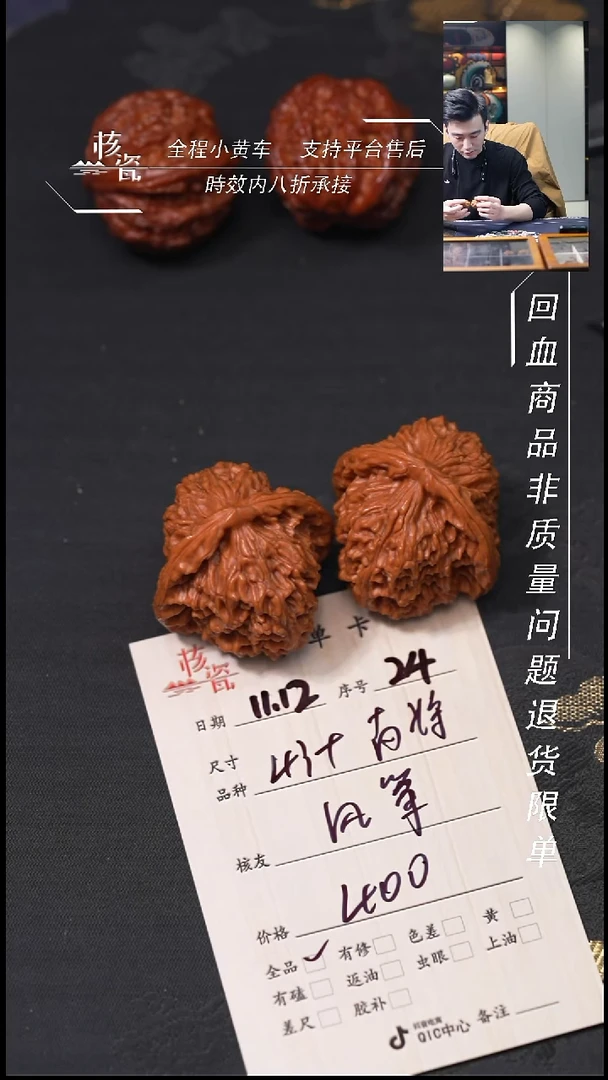 核瓷
全程小黄车 支持平台售后
時效内八折承接
回血商品非质量问题退货限单
单卡
核瓷
日期 11.12 序号 24
尺寸 43+
品种
核友
价格 400
全品 ✓ 有修 色差 黄
有磕 返油 虫眼 上油
差尺 胶补
抖音电商
QIC中心 备注